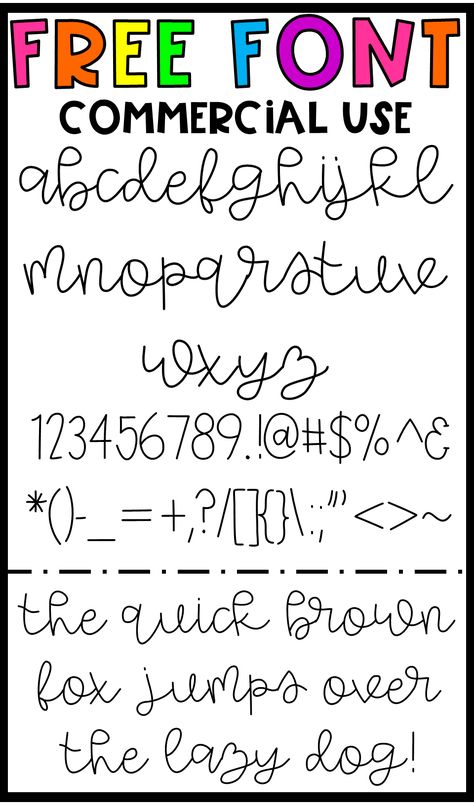 FREE FONT
COMMERCiAL USE
abcdefghijkl
mnopqrstuv
wxyz
123456789.!@#$%^&
*()-_=+,?/[]{}\:;"'<>~
the quick brown
fox jumps over
the lazy dog!